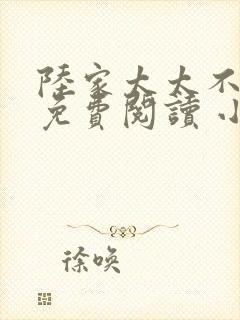 陸家太太不
免費閱讀 小
徐喚